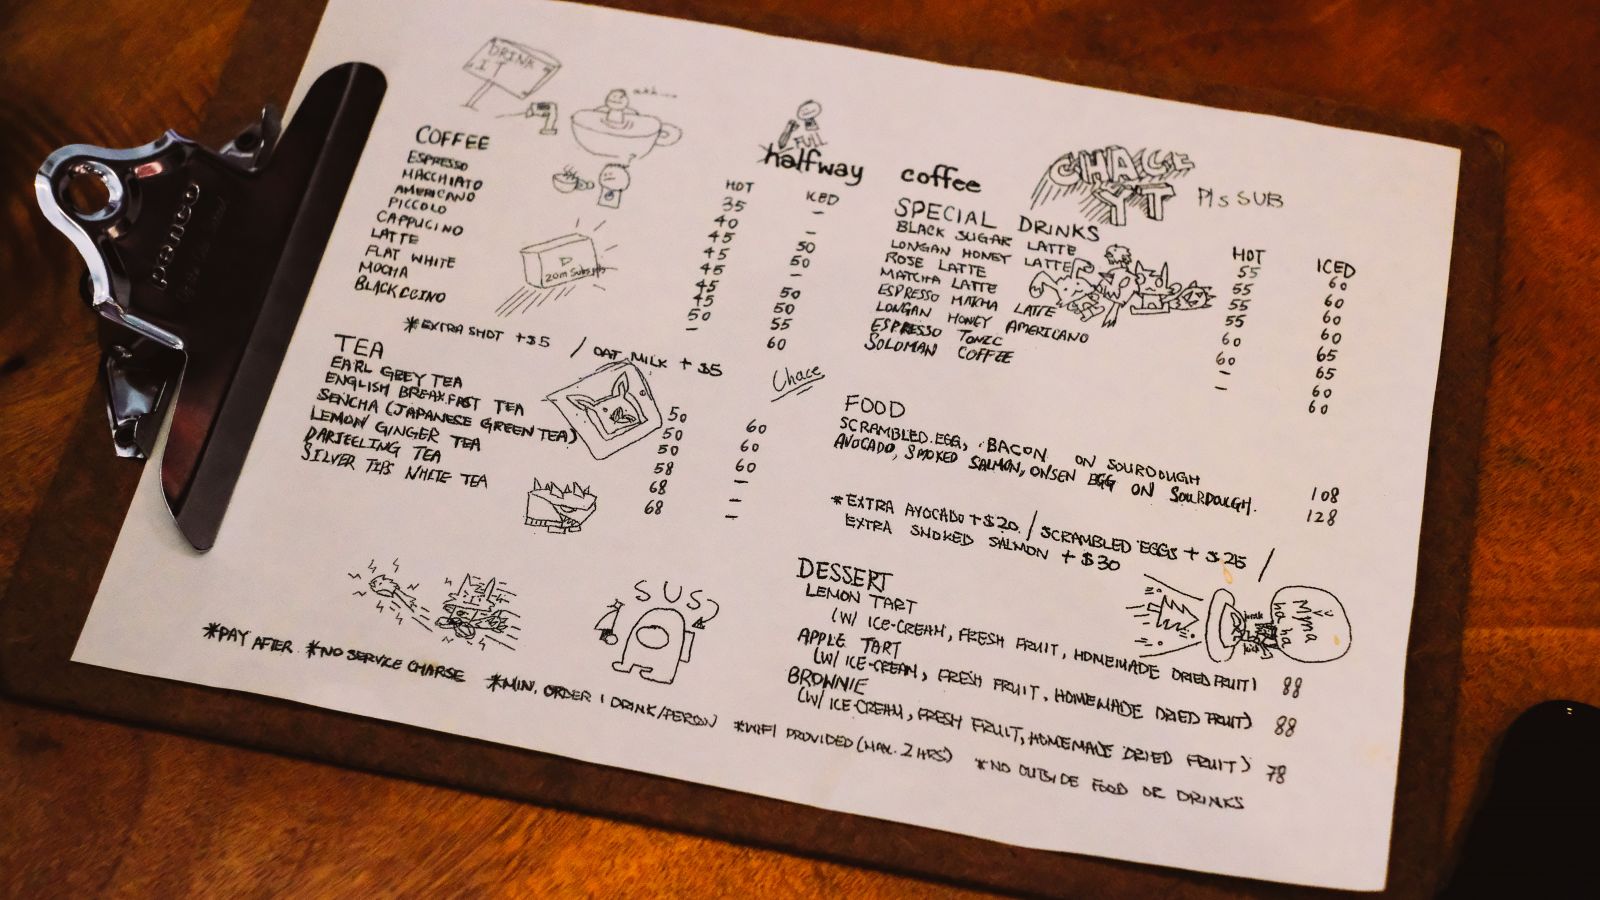 DRINK
IT
ahh...
FULL
halfway coffee
CHACE
YT
Pls SUB
COFFEE HOT ICED
ESPRESSO 35 -
MACCHIATO 40 -
AMERICANO 45 50
PICCOLO 45 50
CAPPUCINO 45 -
LATTE 45 50
FLAT WHITE 45 50
MOCHA 50 55
BLACKCCINO - 60
*EXTRA SHOT +$5 / OAT MILK + $5
Chace
TEA
EARL GREY TEA 50 60
ENGLISH BREAKFAST TEA 50 60
SENCHA (JAPANESE GREEN TEA) 50 60
LEMON GINGER TEA 58 -
DARJEELING TEA 68 -
SILVER TIPS WHITE TEA 68
SPECIAL DRINKS HOT ICED
BLACK SUGAR LATTE 55 60
LONGAN HONEY LATTE 55 60
ROSE LATTE 55 60
MATCHA LATTE 55 60
ESPRESSO MATCHA LATTE 60 65
LONGAN HONEY AMERICANO 60 65
ESPRESSO TONIC - 60
SOLOMAN COFFEE - 60
FOOD
SCRAMBLED EGG, BACON ON SOURDOUGH 108
AVOCADO, SMOKED SALMON, ONSEN EGG ON SOURDOUGH. 128
*EXTRA AVOCADO +$20 / SCRAMBLED EGGS + $25 /
EXTRA SMOKED SALMON + $30
DESSERT
LEMON TART
(W/ ICE-CREAM, FRESH FRUIT, HOMEMADE DRIED FRUIT) 88
APPLE TART
(W/ ICE-CREAM, FRESH FRUIT, HOMEMADE DRIED FRUIT) 88
BROWNIE
(W/ ICE-CREAM, FRESH FRUIT, HOMEMADE DRIED FRUIT) 78
SUS
ha ha
*PAY AFTER *NO SERVICE CHARSE *MIN. ORDER 1 DRINK/PERSON *WIFI PROVIDED (MAX. 2 HRS) *NO OUTSIDE FOOD OR DRINKS
penco